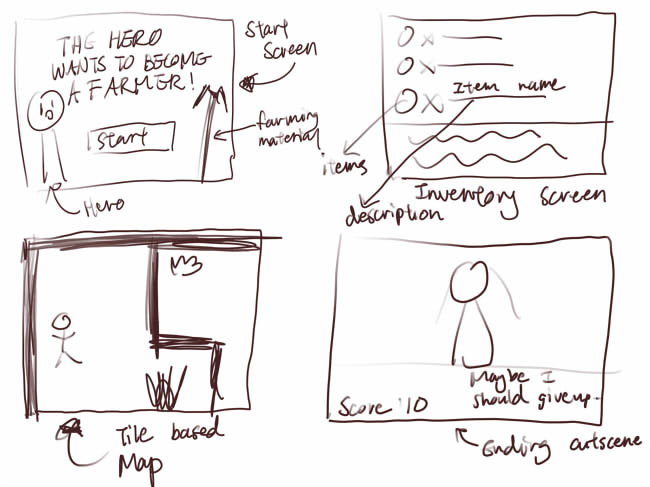 THE HERO
WANTS TO BECOME
A FARMER!
start
Start
Screen
farming
material
Hero
Item name
items
description
Inventory screen
M3
Tile based
Map
Maybe I
should give up.
Score 10
Ending cutscene